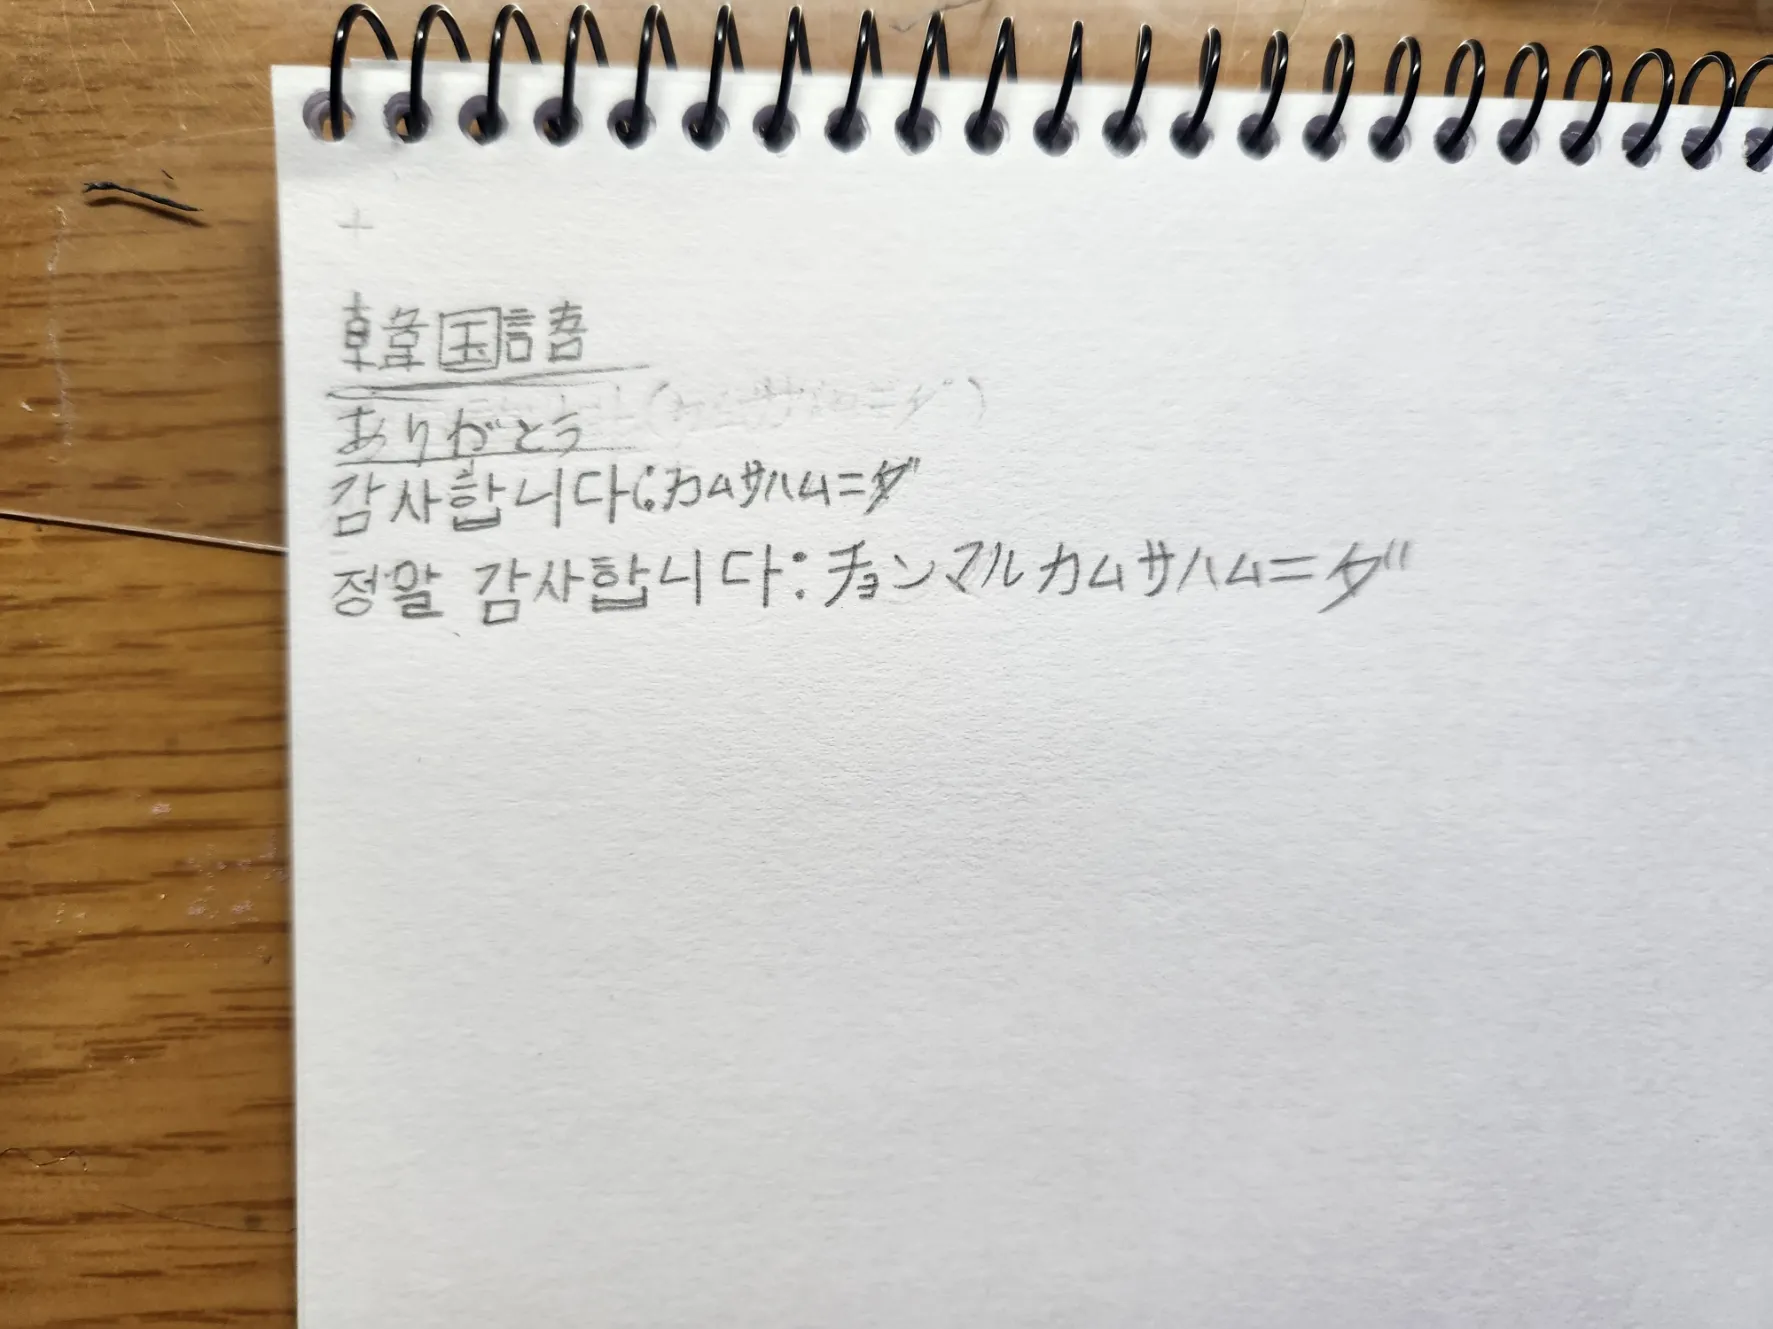 韓国語
ありがとう
감사합니다:カムサハムニダ
정말 감사합니다:チョンマルカムサハムニダ